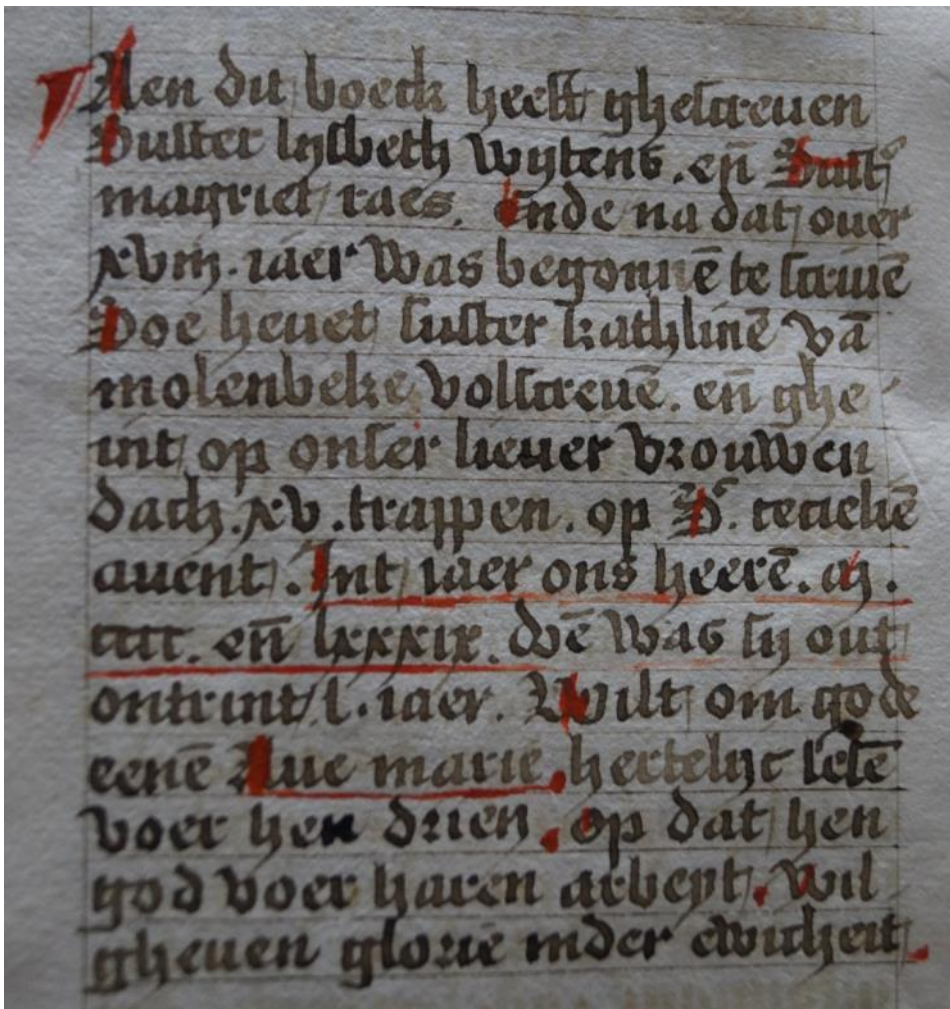 Aen dit boeck heeft ghescreuen
Suster lysbeth wytens. en̄ Sust᷒
magriet raes. Ende na dat ouer
xviij. iaer was begonnē te scriuē
Doe heuet suster kathlinē vā
molenbeke volscreuē. en̄ ghe
int op onser lieuer vrouwen
dach. xv. trappen. op S.
auent. Int iaer ons heerē. M.
cccc. en̄ lxxxix. doē was sy out
ontrint l. iaer. Wilt om gode
eenē Aue marie hertelijc lesē
voer hen drien. op dat hen
god voer haren arbeyt. wil
gheuen glorie inder ewicheit.